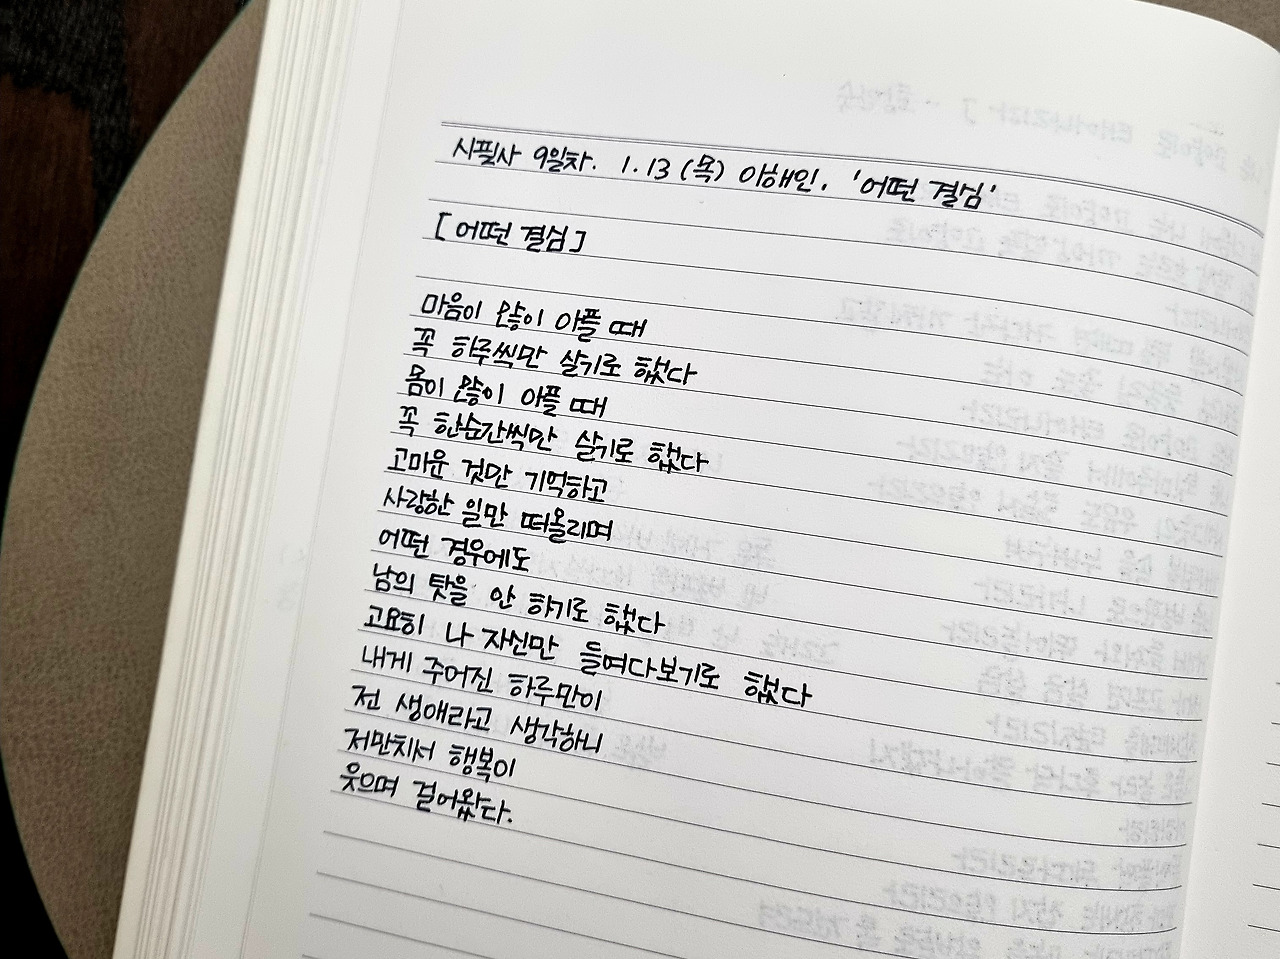 시필사 9일차. 1.13 (목) 이해인. '어떤 결심'
[어떤 결심]
마음이 많이 아플 때
꼭 하루씩만 살기로 했다
몸이 많이 아플 때
꼭 한순간씩만 살기로 했다
고마운 것만 기억하고
사랑한 일만 떠올리며
어떤 경우에도
남의 탓을 안 하기로 했다
고요히 나 자신만 들여다보기로 했다
내게 주어진 하루만이
전 생애라고 생각하니
저만치서 행복이
웃으며 걸어왔다.